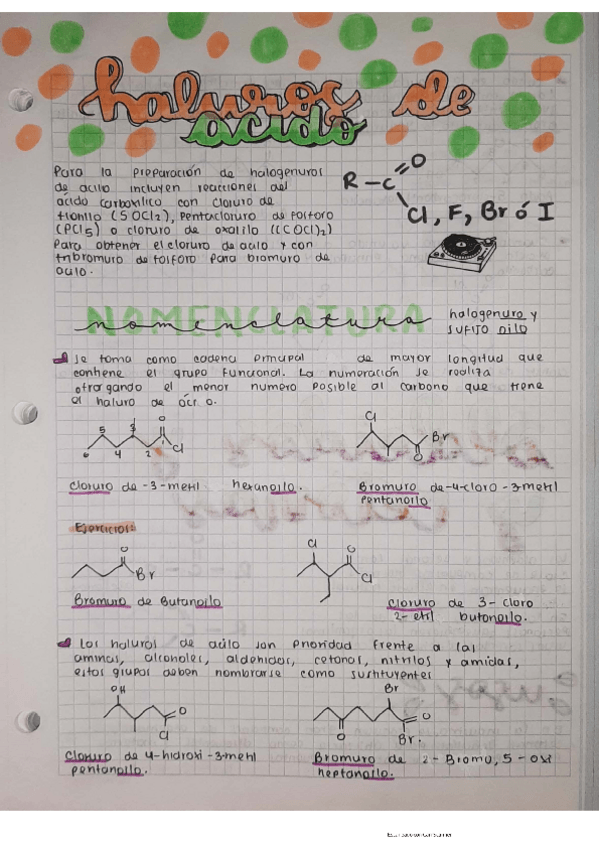 haluros de
ácido
Para la preparación de halogenuros
de acilo incluyen reacciones del
ácido carboxílico con cloruro de
tionilo (SOCl2), pentacloruro de fosforo
(PCl5) o cloruro de oxalilo ((COCl)2)
Para obtener el cloruro de acilo y con
tribromuro de fosforo para bromuro de
acilo.
R-C
O
Cl, F, Br ó I
NOMENCLATURA
nomenclatura
halogenuro y
sufijo oilo
Se toma como cadena principal de mayor longitud que
contiene el grupo funcional. La numeración se realiza
otorgando el menor numero posible al carbono que tiene
el haluro de
O
5 3
Cl
6 4 2
Cl
Br
O
Cloruro de -3-metil hexanoilo.
Bromuro de-4-cloro-3-metil
pentanoilo
Ejercicios:
O
Br
Cl O
Cl
Bromuro de Butanoilo
Cloruro de 3-cloro
2-etil butanoilo.
Los haluros de acilo son prioridad frente a las
aminas, alcoholes, aldehidos, cetonas, nitrilos y amidas,
estos grupos deben nombrarse como sustituyentes
OH
O
Cl
Br
O
O
Br.
Cloruro de 4-hidroxi-3-metil
pentanoilo.
Bromuro de 2-Bromo, 5-oxi
heptanoilo.